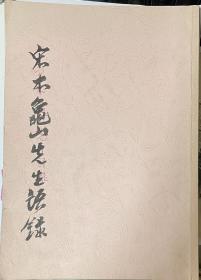 宋本龜山先生語錄